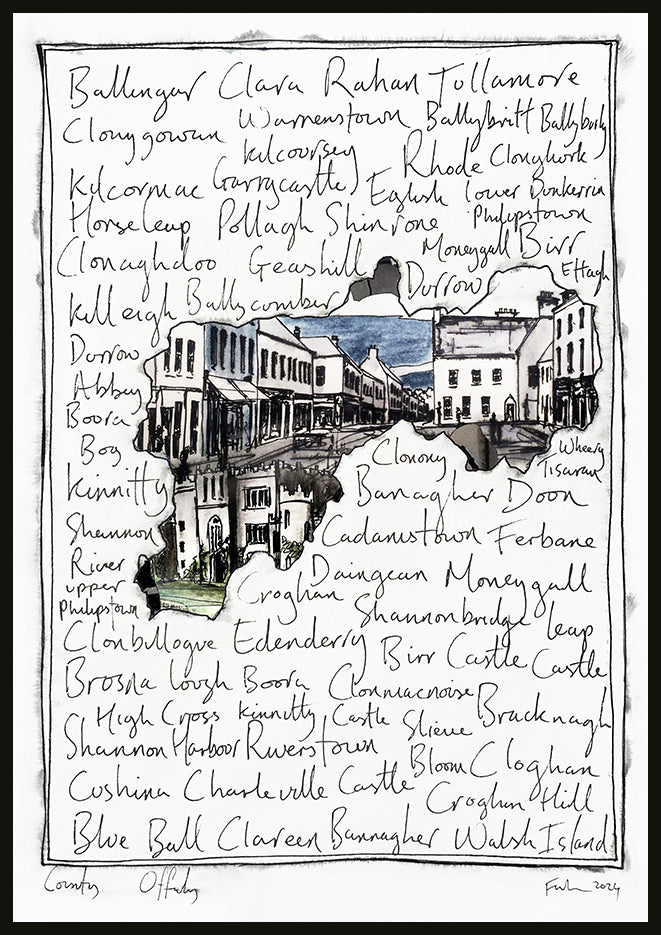 Ballingar Clara Rahan Tullamore
Clonygowan Warrenstown Ballybritt Ballyburly
Kilcoursey Rhode Cloneyhork
Kilcormac Garrycastle Eglish Lower Dunkerrin
Horseleap Pollagh Shinrone Philipstown
Clonaghdoo Geashill Moneygall Birr
Durrow Ettagh
Killeigh Ballycomber
Durrow
Abbey
Boora
Bog
Kinnitty
Shannon
River
upper
Philipstown
Clonony Wheery
Tisaran
Banagher Doon
Cadamstown Ferbane
Daingean Moneygall
Croghan Shannonbridge Leap
Clonbullogue Edenderry Birr Castle Castle
Brosna Lough Boora Clonmacnoise
High Cross Kinnitty Castle Slieve Bracknagh
Shannon Harbour Riverstown Bloom Cloghan
Cushina Charleville Castle
Croghan Hill
Blue Ball Clareen Bannagher Walsh Island
County Offaly 2024